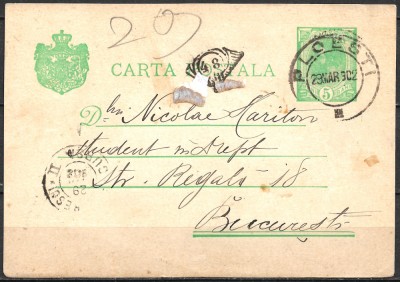 20
CARTA POSTALA
PLOESTI
23 MAR 902
5
Dlui Nicolae Hariton
student în Drept
Str. Regală 18
București